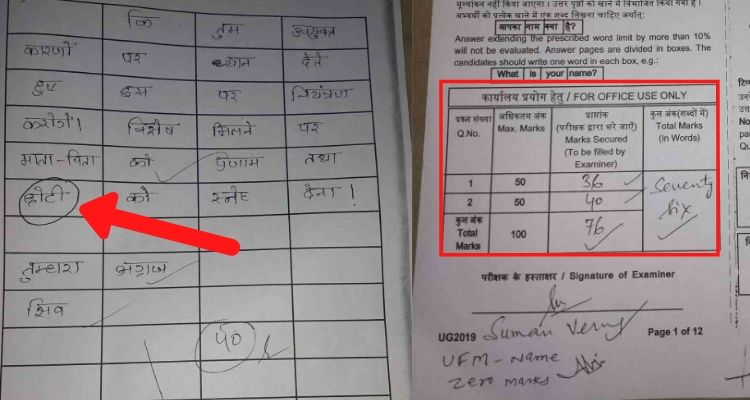 कि तुम उपयुक्त
कारणों पर ध्यान देते
हुए इस पर नियंत्रण
करोगे। विशेष मिलने पर
माता-पिता को प्रणाम तथा
छोटी को स्नेह देना!
तुम्हारा अग्रज
शिव
40
मूल्यांकन नहीं किया जाएगा। उत्तर पृष्ठों को खाने में विभाजित किया गया है।
अभ्यर्थी को प्रत्येक खाने में एक शब्द लिखना चाहिए अर्थात्:
आपका नाम क्या है?
Answer extending the prescribed word limit by more than 10%
will not be evaluated. Answer pages are divided in boxes. The
candidates should write one word in each box, e.g.:
What is your name?
कार्यालय प्रयोग हेतु / FOR OFFICE USE ONLY
प्रश्न संख्या Q.No. अधिकतम अंक Max. Marks प्राप्तांक (परीक्षक द्वारा भरे जाएँ) Marks Secured (To be filled by Examiner) कुल अंक(शब्दों में) Total Marks (in Words)
1 50 36 Seventy
2 50 40 Six
कुल अंक Total Marks 100 76
परीक्षक के हस्ताक्षर / Signature of Examiner
UG2019 Suman Verma Page 1 of 12
UFM - Name
Zero marks